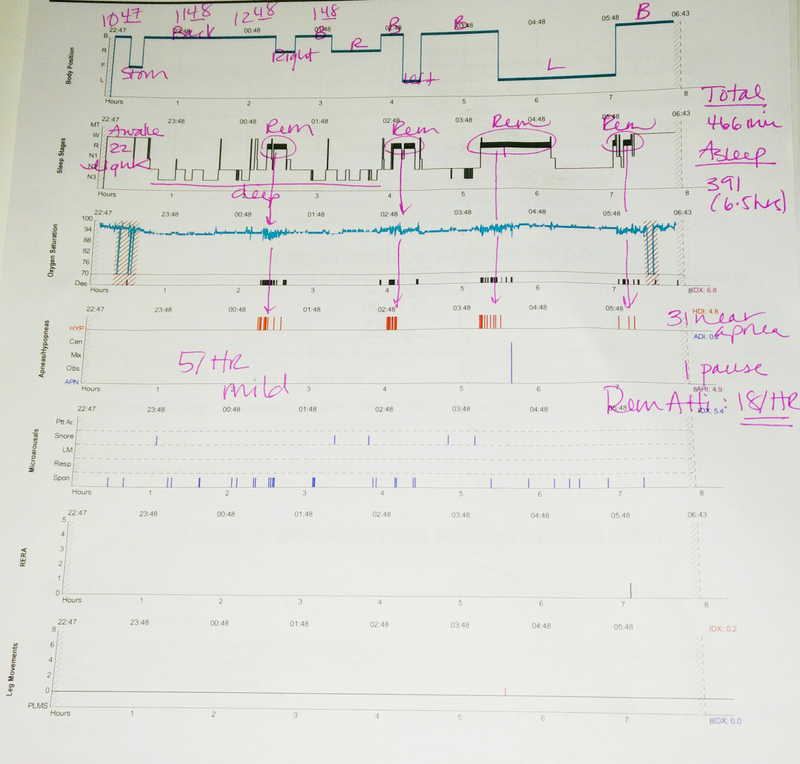 10 47 1148 1248 148
22:47 23:48 00:48 01:48 02:48 03:48 04:48 05:48 06:43
Back B B B B
Body Position
B
R
F
L
Stom Right R Left L
Hours 1 2 3 4 5 6 7 8
Total
466 min
Asleep
391
(6.5hrs)
22:47 23:48 00:48 01:48 02:48 03:48 04:48 05:48 06:43
Awake Rem Rem Rem Rem
22
Sleep Stages
MT
W
R
N1
N2
N3
deep
Hours 1 2 3 4 5 6 7 8
22:47 23:48 00:48 01:48 02:48 03:48 04:48 05:48 06:43
Oxygen Saturation
100
94
88
82
76
70
Des
Hours 1 2 3 4 5 6 7 8
IDX: 6.8
22:47 23:48 00:48 01:48 02:48 03:48 04:48 05:48
HDI: 4.8
31 near
apnea
Apneas/Hypopneas
HYP
Cen
Mix
Obs
APN
5/HR
mild
1 pause
Hours 1 2 3 4 5 6 7 8
AHI: 4.9
Rem AHi: 18/HR
IDX: 5.4
22:47 23:48 00:48 01:48 02:48 03:48 04:48 05:48
Microarousals
Ptt Ar.
Snore
LM
Resp
Spon
Hours 1 2 3 4 5 6 7 8
22:47 23:48 00:48 01:48 02:48 03:48 04:48 05:48 06:43
RERA
5
4
3
2
1
0
Hours 1 2 3 4 5 6 7 8
22:47 23:48 00:48 01:48 02:48 03:48 04:48 05:48
IDX: 0.2
Leg Movements
8
6
4
2
0
PLMS
Hours 1 2 3 4 5 6 7 8
IDX: 0.0